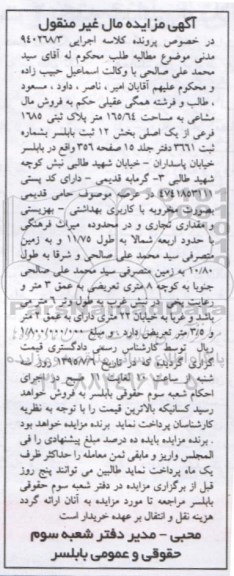 آگهی مزایده مال غیر منقول
در خصوص پرونده کلاسه اجرایی ۹۴۰۲۶۸/۳
مدنی موضوع مطالبه طلب محکوم له آقای سید
محمد علی صالحی با وکالت اسماعیل حبیب زاده
و محکوم علیهم آقایان امیر ، ناصر ، داود ، مسعود
، طالب و فرشته همگی عقیلی حکم به فروش مال
مشاعی به مساحت ۱۶۵/۶۴ متر پلاک ثبتی ۱۶۸۵
فرعی از یک اصلی بخش ۱۲ ثبت بابلسر بشماره
ثبت ۳۶۶۱ دفتر جلد ۱۵ صفحه ۳۵۶ واقع در بابلسر
خیابان پاسداران – خیابان شهید طالبی نبش کوچه
شهید طالبی ۳- گرمابه قدیمی – دارای کد پستی
۴۷۴۱۸۵۳۶۱ در عرصه موصوف حامی قدیمی
بصورت مخروبه با کاربری بهداشتی – بهزیستی
و مقداری تجاری و در محدوده میراث فرهنگی
با حدود اربعه شمالا به طول ۱۱/۷۵ و به زمین
متصرفی سید محمد علی صالحی و شرقا به طول
۱۰/۸۰ به زمین متصرفی سید محمد علی صالحی
جنوبا به کوچه ۸ متری تعریضی به عمق ۳ متر و
رعایت پخی در نبش غرب به طول وتر ۶ متر می
باشد و غربا به خیابان ۲۲ متری دارای به عمق ۳ متر
و ۳/۵ متر تعریض دارد . و مبلغ ۱/۸۰۰/۰۰۰/۰۰۰
ریال توسط کارشناس رسمی دادگستری قیمت
گزاری گردیده که در تاریخ ۱۳۹۵/۷/۱۰ روز
شنبه از ساعت ۱۰ لغایت ۱۱ صبح در اجرای
احکام شعبه سوم حقوقی بابلسر به فروش خواهد
رسید کسانیکه بالاترین قیمت را با توجه به نظریه
کارشناسان پرداخت نماید برنده مزایده خواهد بود
. برنده مزایده بایده ده درصد مبلغ پیشنهادی را فی
المجلس واریز و مابقی ثمن معامله را حداکثر ظرف
یک ماه پرداخت نماید طالبین می توانند پنج روز
قبل از برگزاری مزایده در دفتر شعبه سوم حقوقی
بابلسر مراجعه تا مورد مزایده به آنان ارائه گردد
هزینه نقل و انتقال بر عهده خریدار است
محبی – مدیر دفتر شعبه سوم
حقوقی و عمومی بابلسر